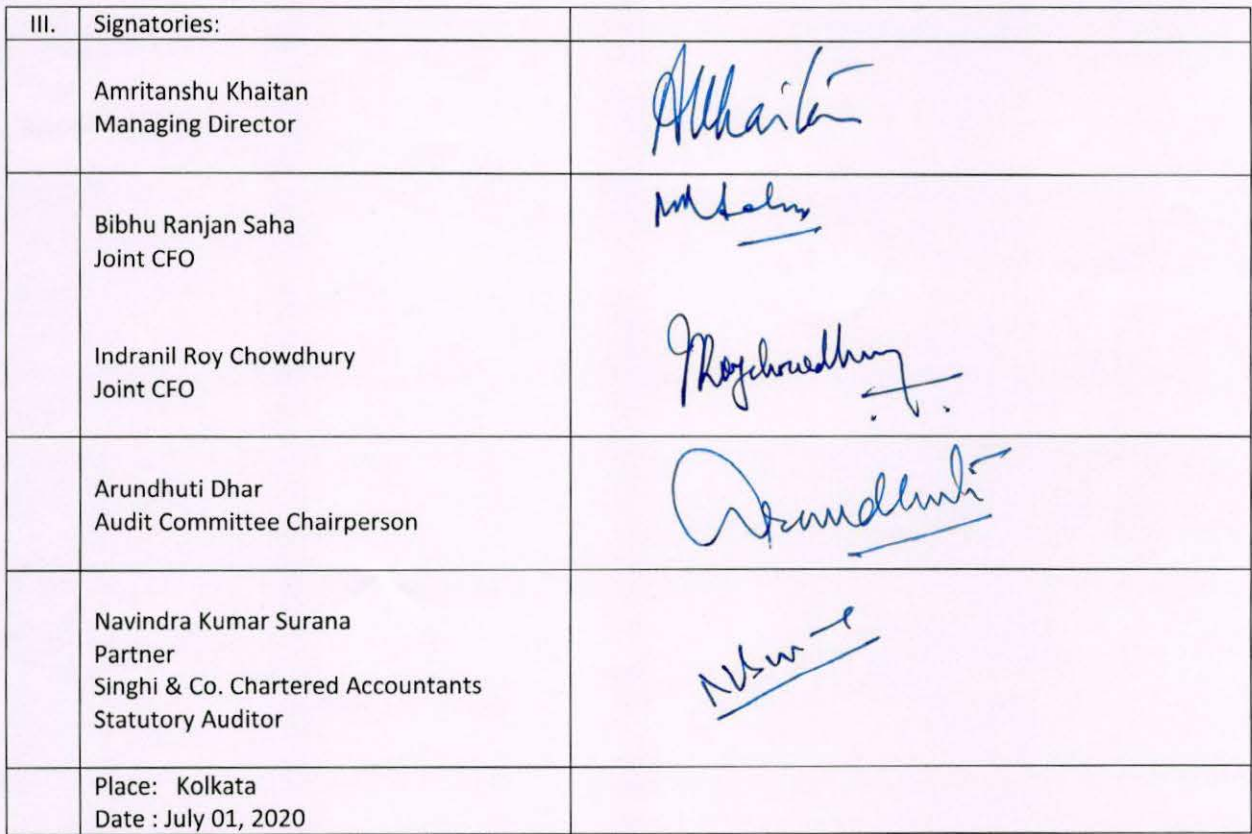 III. Signatories:
Amritanshu Khaitan
Managing Director
AKhaitan
Bibhu Ranjan Saha
Joint CFO
Indranil Roy Chowdhury
Joint CFO
Roychowdhury
Arundhuti Dhar
Audit Committee Chairperson
Arundhuti
Navindra Kumar Surana
Partner
Singhi & Co. Chartered Accountants
Statutory Auditor
Place: Kolkata
Date : July 01, 2020